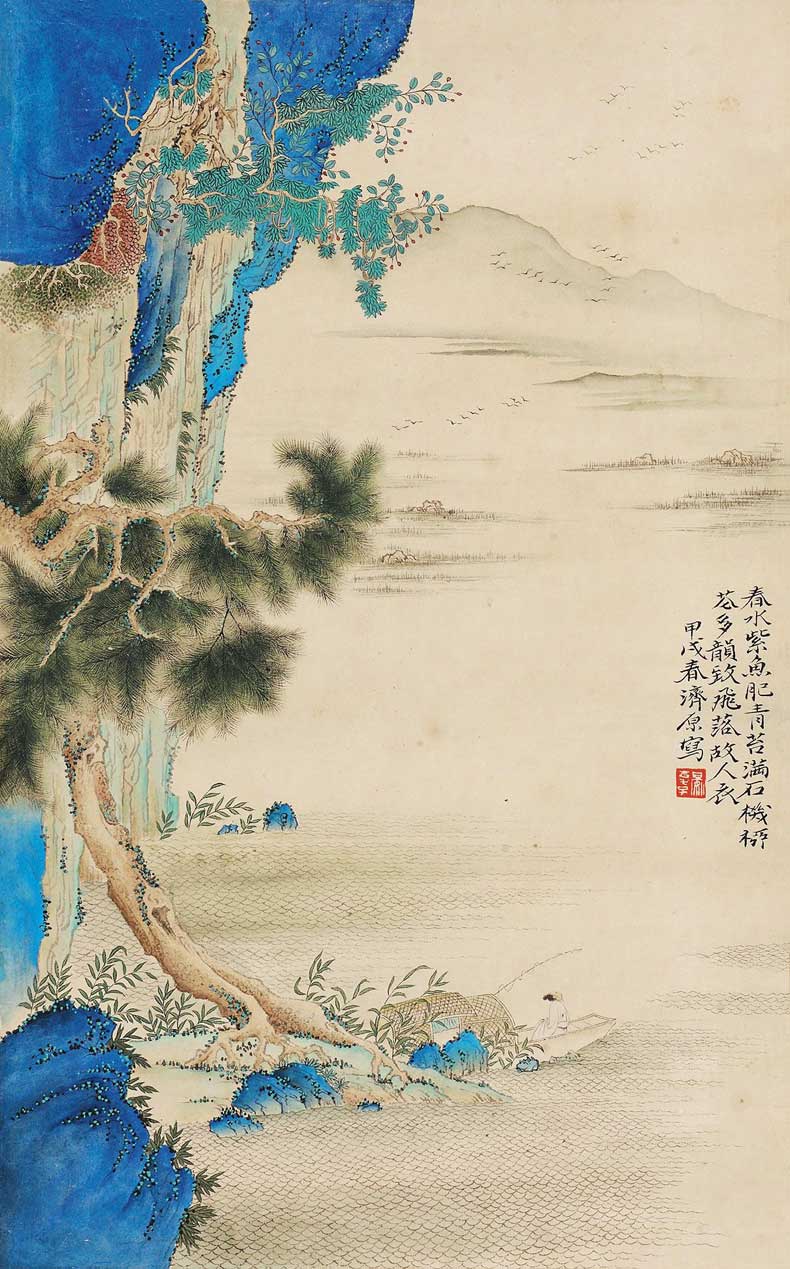 春水紫魚肥青苔满石機柳
花多韻致飛落故人衣
甲戌春濟原寫